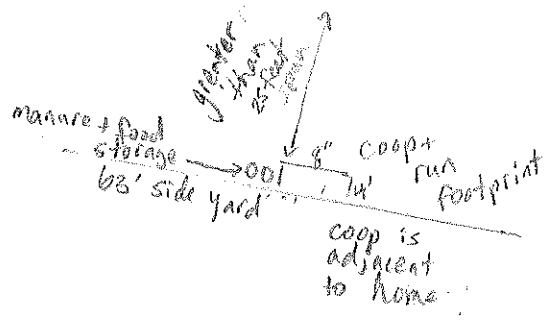 greater
than
25 feet
manure + food
storage
63' side yard
8"
4'
coop +
run
footprint
coop is
adjacent
to home